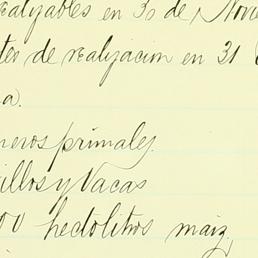 realizables en 30 de Novie
tes de realizacion en 31
a.
neros primales.
illos y Vacas
00 hectolitros maiz,